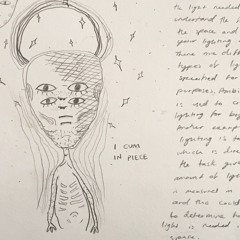 I CUM
IN PIECE
the light needed
understand the
the space and
your lighting
There are diff
types of lig
specified for
purposes. Ambi
is used to c
lighting for
Another exam
lighting is t
which is dire
the task give
amount of lig
is measured in
and this could
to determine h
light is needed
space.